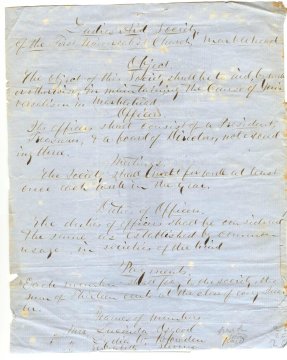 Ladies Aid Society
of the First Universalist Church Marblehead
Object.
The Object of this Society shall be to aid, by work
or otherwise, in maintaining the cause of Univ
ersalism in Marblehead
Officers
The officers shall consist of a President,
Treasurer, & a board of Directors, not exceed
ing three.
Meetings
The Society shall meet for work at least
once each week in the year.
Duties of Officers.
The duties of officers shall be considered
the same as established by common
usage, in societies of the kind
Payments.
Each member shall pay to the society the
sum of thirteen cents at the close of every
Names of members
Mrs Lucinda Osgood